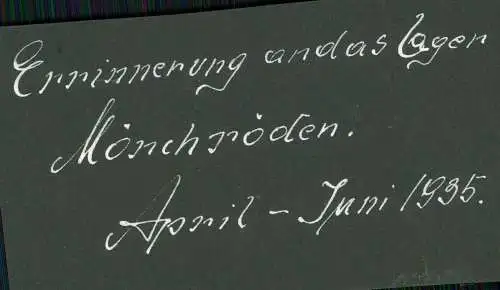 Errinnerung an das Lager
Mönchröden.
April – Juni 1935.